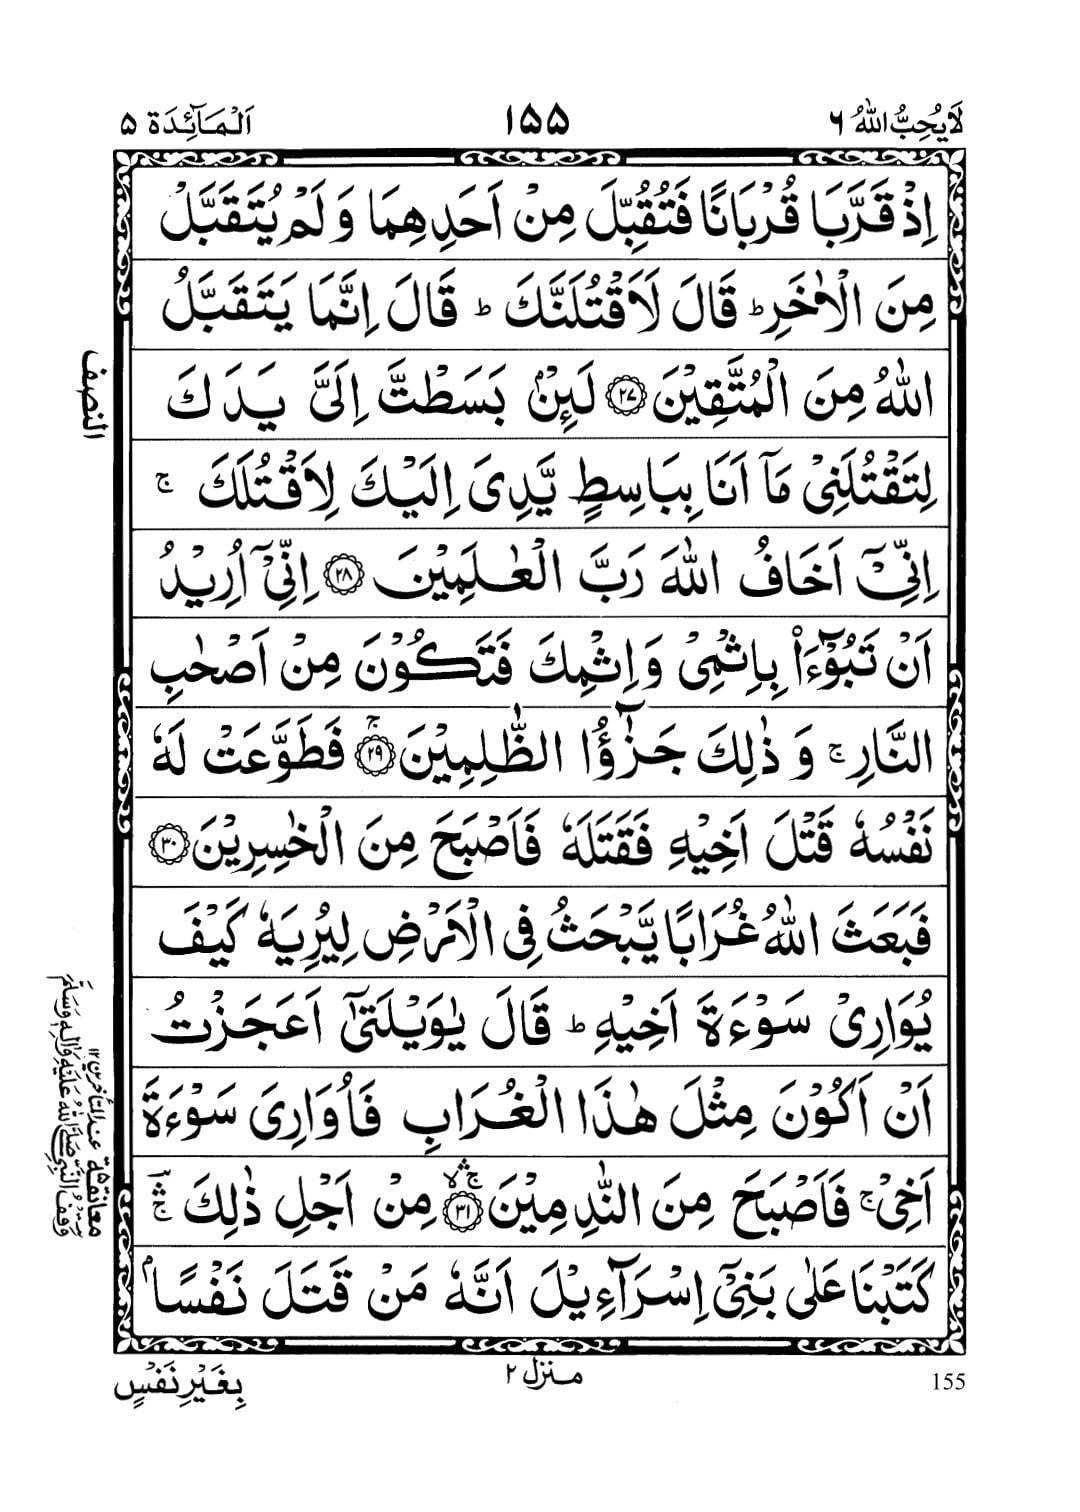 لَا يُحِبُّ اللّٰهُ ٦
١٥٥
اَلْمَآئِدَة ٥
اِذْ قَرَّبَا قُرْبَانًا فَتُقُبِّلَ مِنْ اَحَدِهِمَا وَ لَمْ يُتَقَبَّلْ
مِنَ الْاٰخَرِ ؕ قَالَ لَاَقْتُلَنَّكَ ؕ قَالَ اِنَّمَا يَتَقَبَّلُ
اللّٰهُ مِنَ الْمُتَّقِيْنَ ﴿٢٧﴾ لَئِنْۢ بَسَطْتَّ اِلَيَّ يَدَكَ
لِتَقْتُلَنِيْ مَاۤ اَنَا بِبَاسِطٍ يَّدِيَ اِلَيْكَ لِاَقْتُلَكَ ۚ
اِنِّيْۤ اَخَافُ اللّٰهَ رَبَّ الْعٰلَمِيْنَ ﴿٢٨﴾ اِنِّيْۤ اُرِيْدُ
اَنْ تَبُوْٓءَاۡ بِاِثْمِيْ وَ اِثْمِكَ فَتَكُوْنَ مِنْ اَصْحٰبِ
النَّارِ ۚ وَ ذٰلِكَ جَزٰٓؤُا الظّٰلِمِيْنَ ۚ﴿٢٩﴾ فَطَوَّعَتْ لَهٗ
نَفْسُهٗ قَتْلَ اَخِيْهِ فَقَتَلَهٗ فَاَصْبَحَ مِنَ الْخٰسِرِيْنَ ﴿٣٠﴾
فَبَعَثَ اللّٰهُ غُرَابًا يَّبْحَثُ فِي الْاَرْضِ لِيُرِيَهٗ كَيْفَ
يُوَارِيْ سَوْءَةَ اَخِيْهِ ؕ قَالَ يٰوَيْلَتٰۤى اَعَجَزْتُ
اَنْ اَكُوْنَ مِثْلَ هٰذَا الْغُرَابِ فَاُوَارِيَ سَوْءَةَ
اَخِيْ ۚ فَاَصْبَحَ مِنَ النّٰدِمِيْنَ ۚۛۙ﴿٣١﴾ مِنْ اَجْلِ ذٰلِكَ ۚۛ
كَتَبْنَا عَلٰى بَنِيْۤ اِسْرَآءِيْلَ اَنَّهٗ مَنْ قَتَلَ نَفْسًۢا
النصف
معانقة ٥ عند المتأخرين ١٢
وقف النبي صَلَّى اللّٰهُ عَلَيْهِ وَاٰلِهٖ وَسَلَّمَ
بِغَيْرِ نَفْسٍ
منزل ٢
155